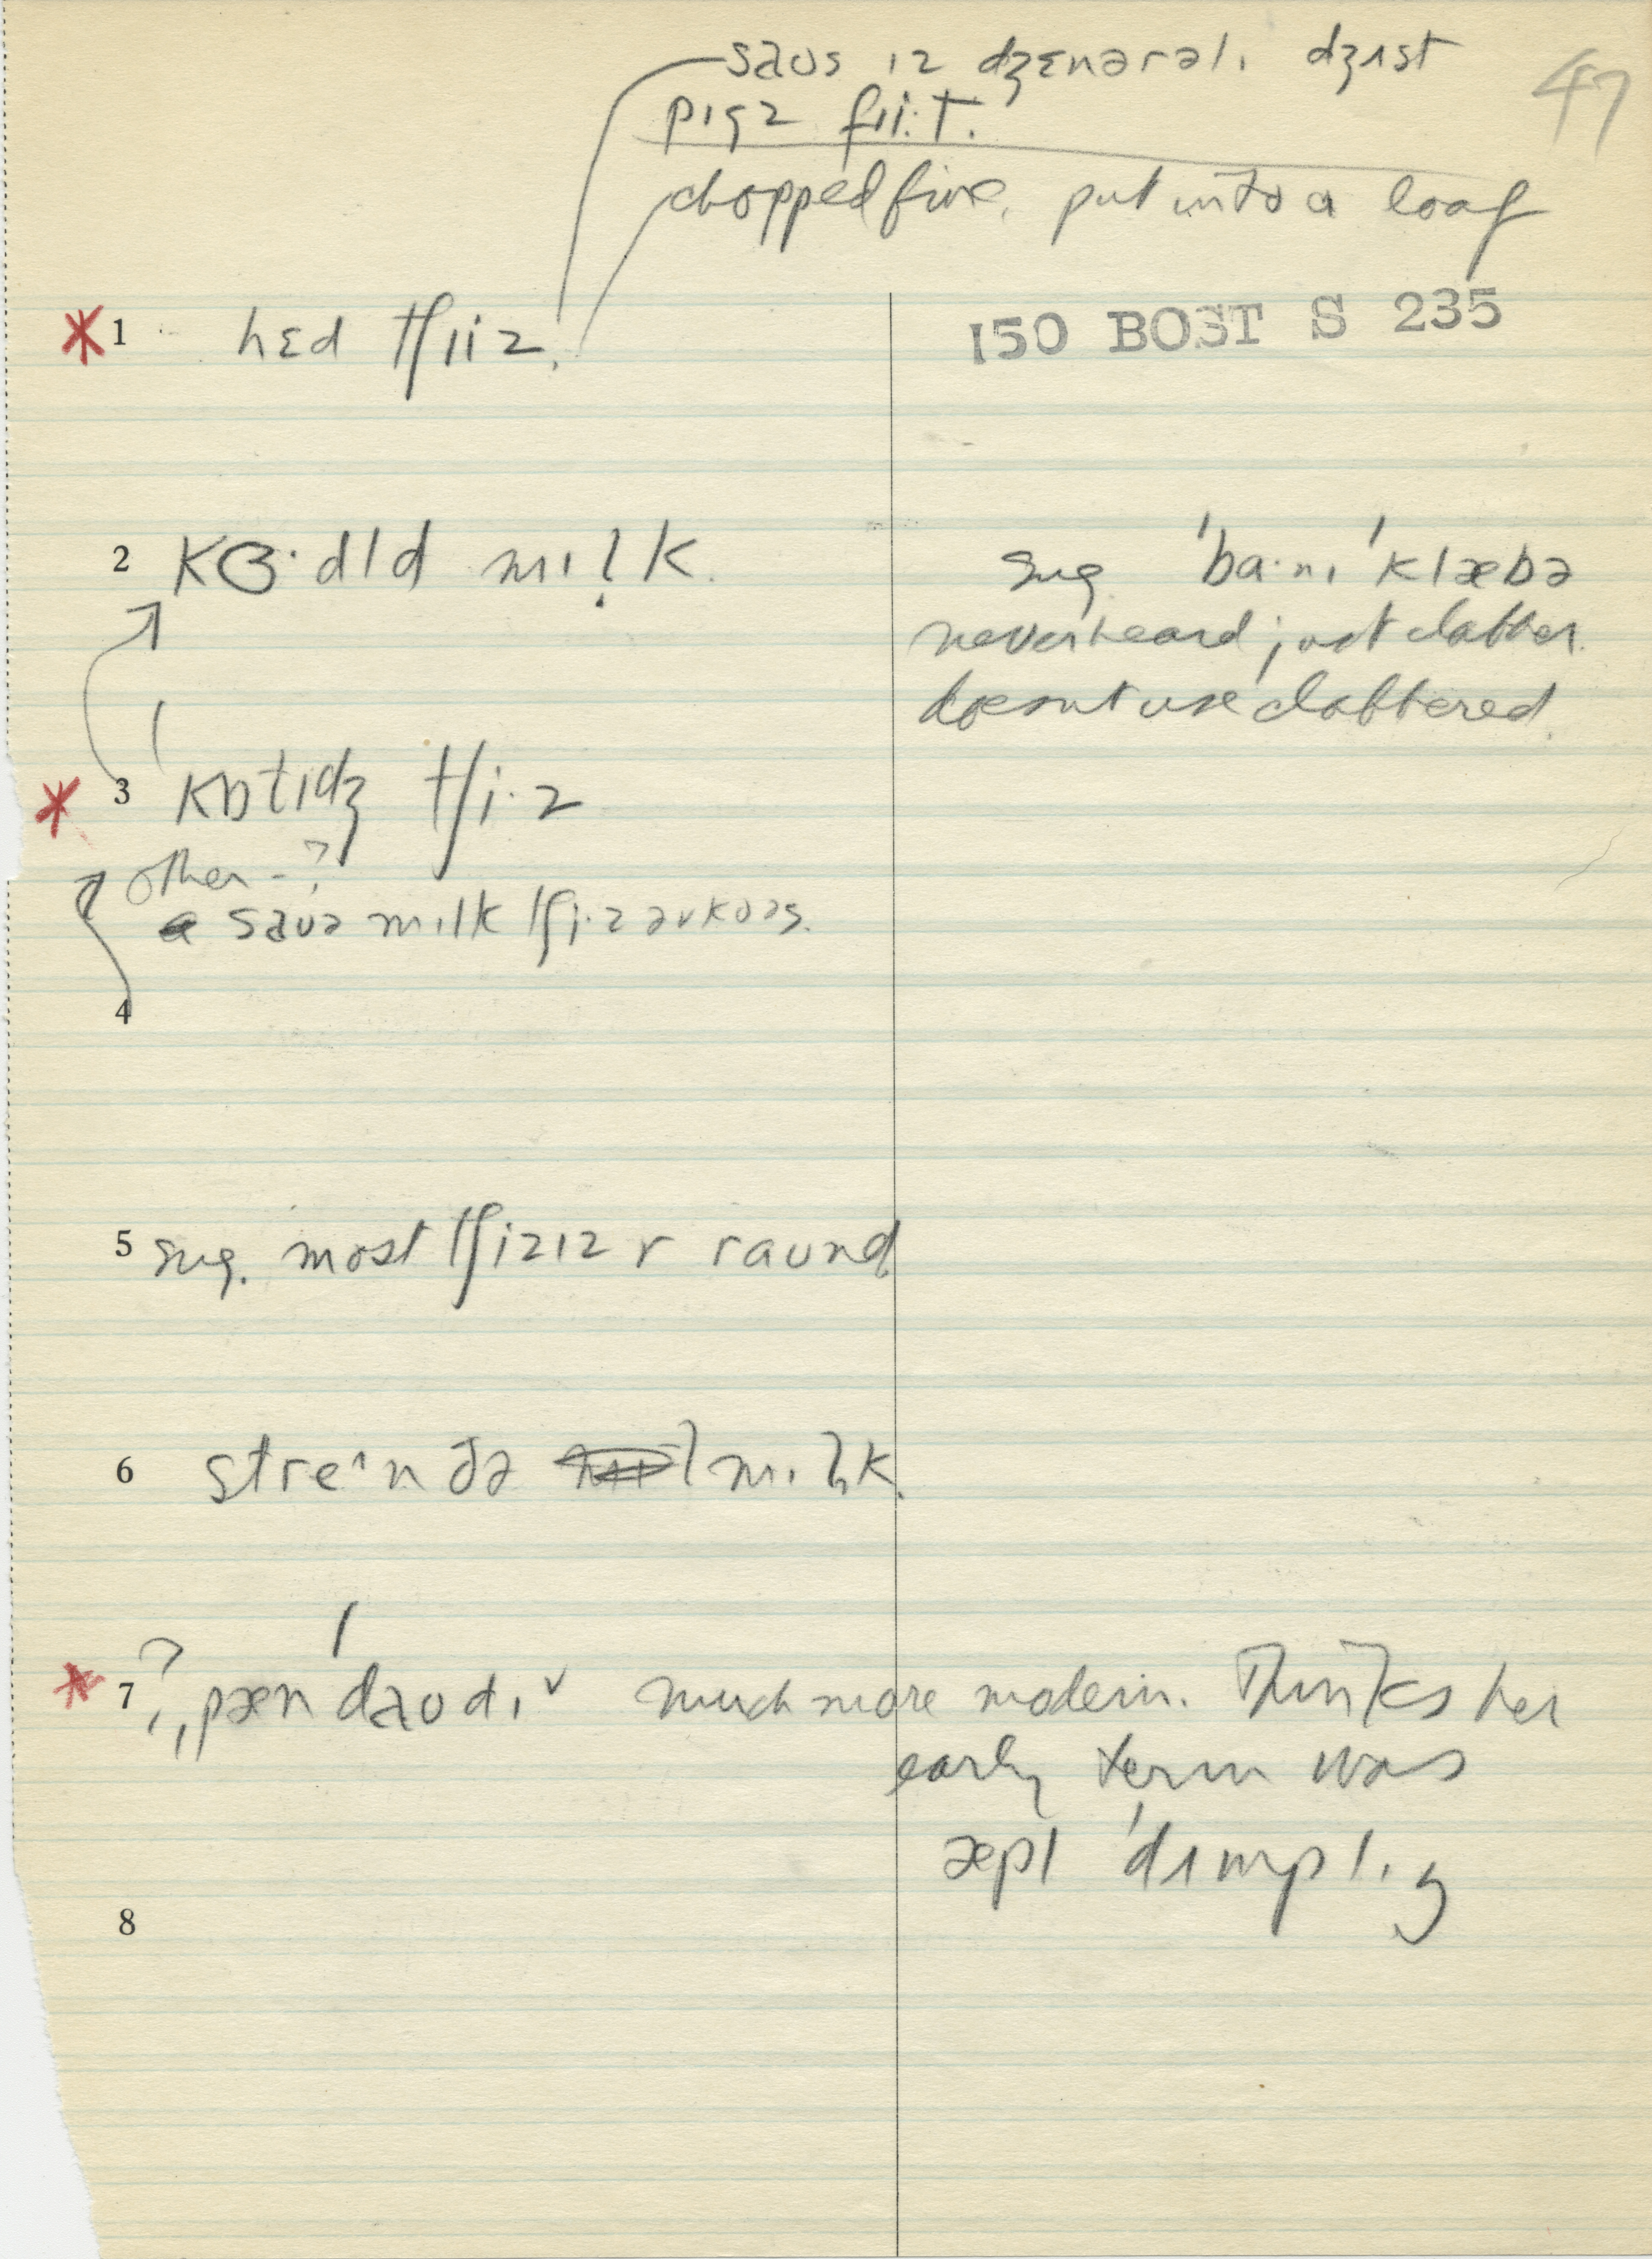 saʊs ɪz dʒɛnərəlɪ dʒʌst
pɪgz fɪi·t.
47
chopped fine, put into a loaf
150 BOST S 235
1 hɛd tʃɪiz.
2 kɜ·dld mɪlk.
sug. ˈba·nɪ ˈklæbə
never heard; just clabber.
doesnt use clabbered.
3 ˈkɒtɪdʒ tʃi·z
other - ?
saʊə mɪlk tʃi·z əv kɔəs.
4
5 sug. most tʃizɪz r raʊnd
6 streˆn ðə mɪlk.
7 ?, ˌpæn ˈdaʊdɪˇ much more modern. Thinks her
early term was
æpl ˈdʌmplɪŋ
8